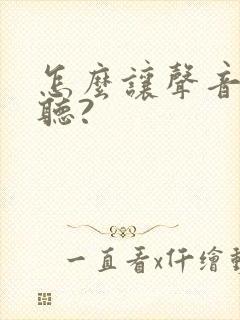 怎麼讓聲音
聽?
一直看x仟繪動